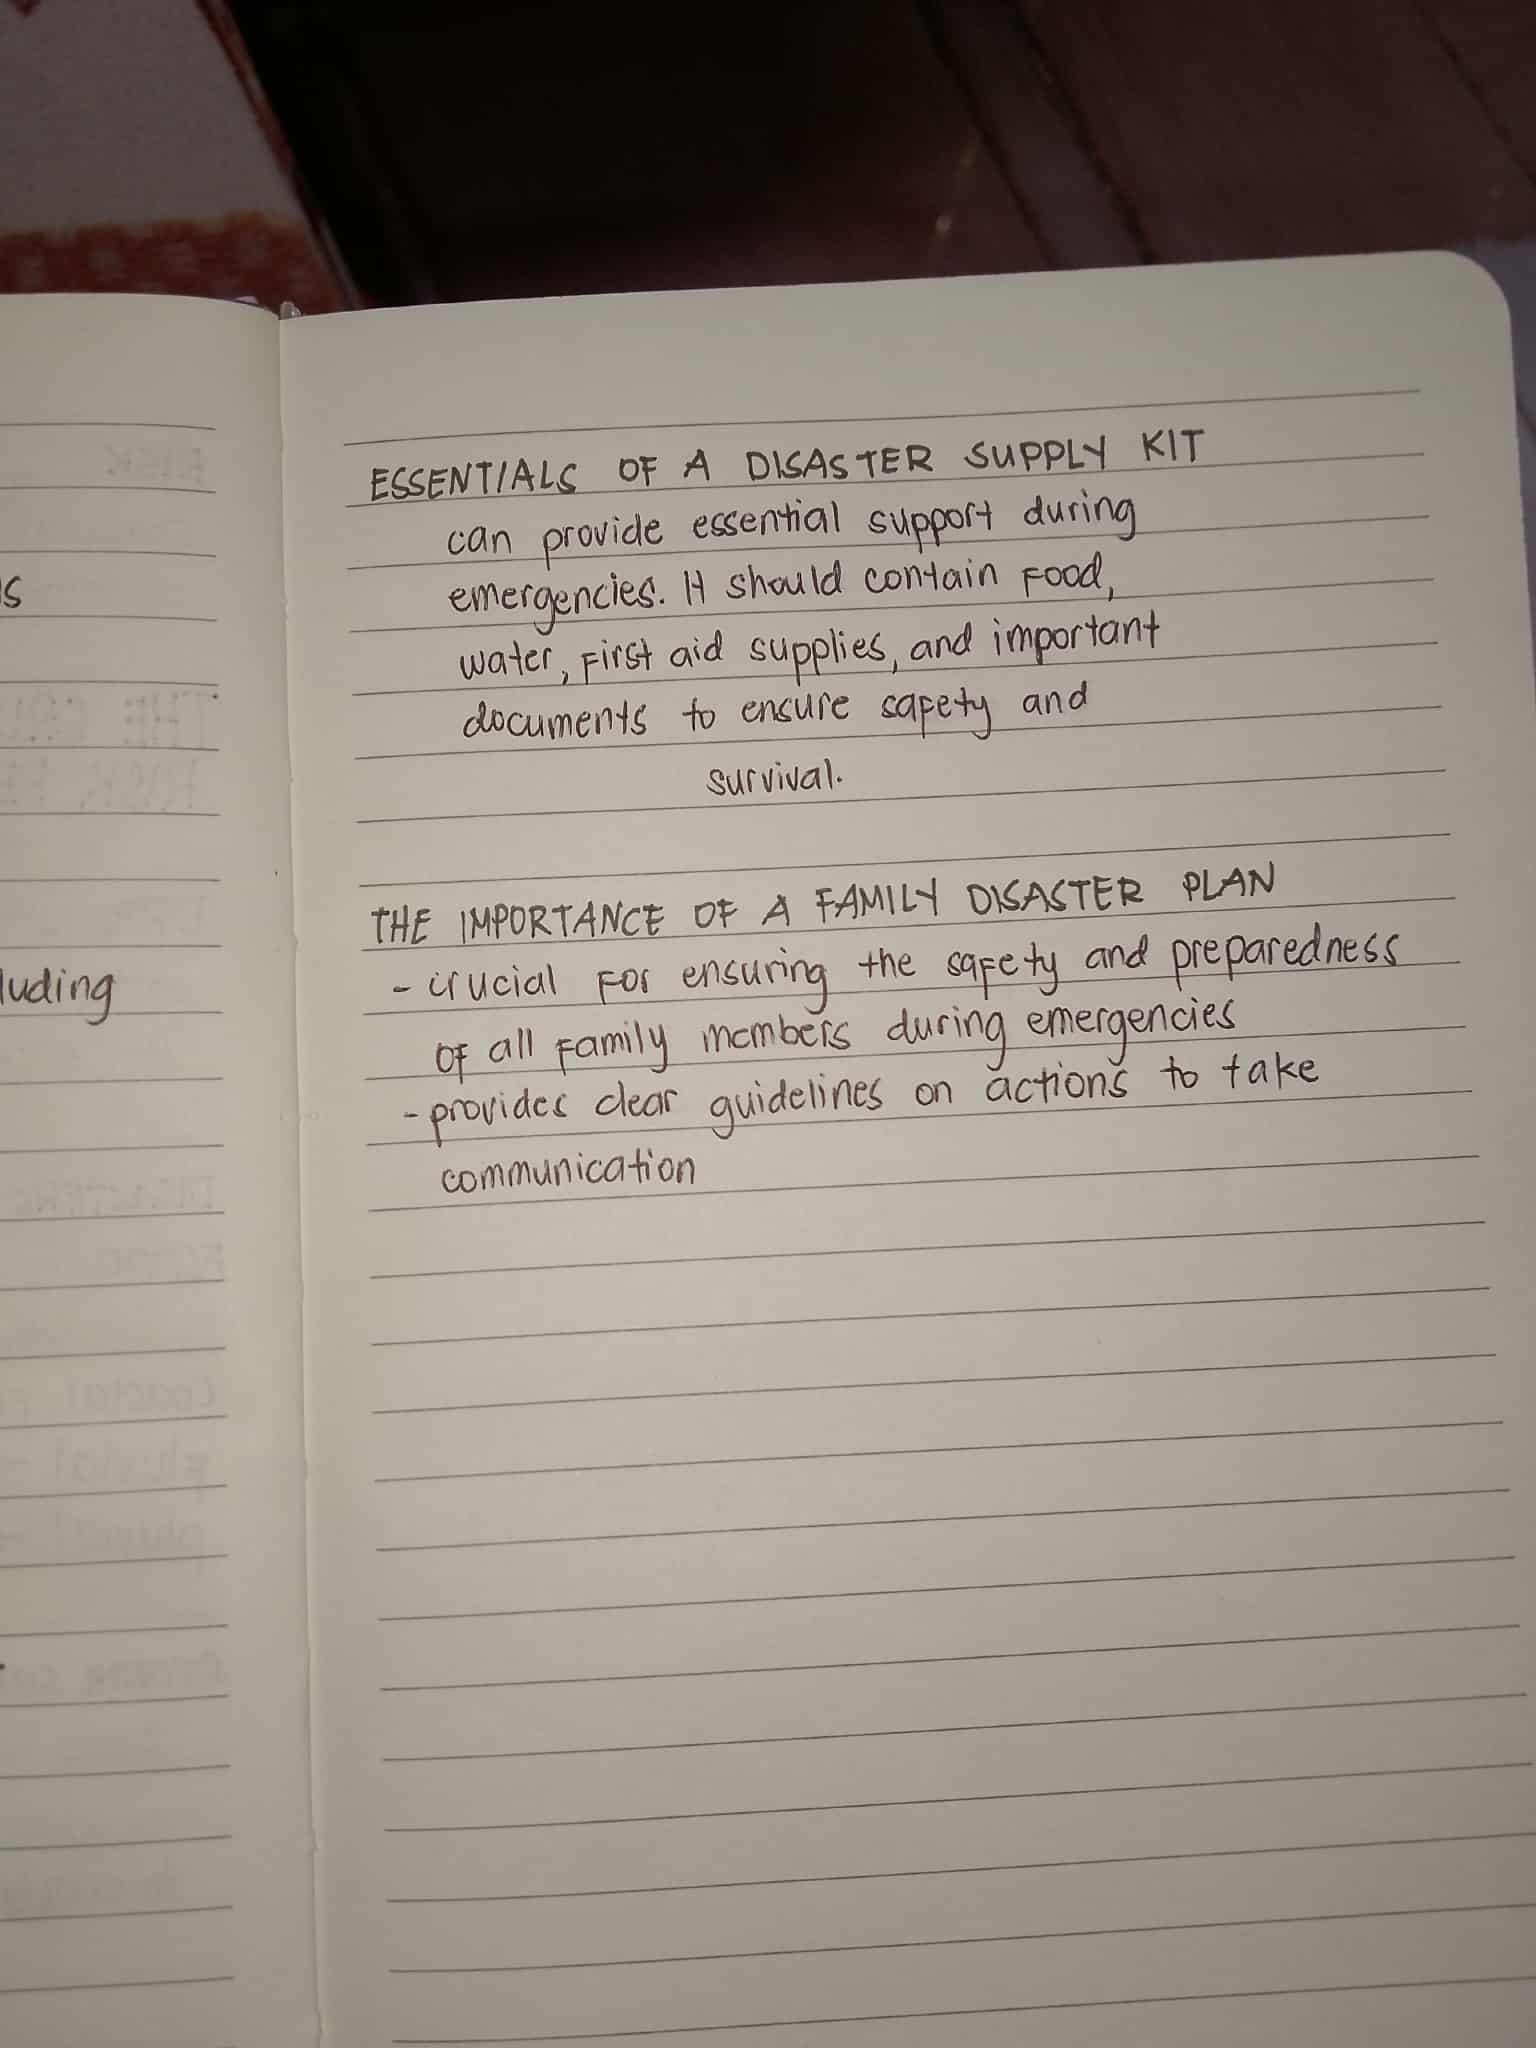 ESSENTIALS OF A DISASTER SUPPLY KIT
can provide essential support during
emergencies. It should contain food,
water, first aid supplies, and important
documents to ensure safety and
survival.
THE IMPORTANCE OF A FAMILY DISASTER PLAN
- crucial for ensuring the safety and preparedness
of all family members during emergencies
- provides clear guidelines on actions to take
communication
luding